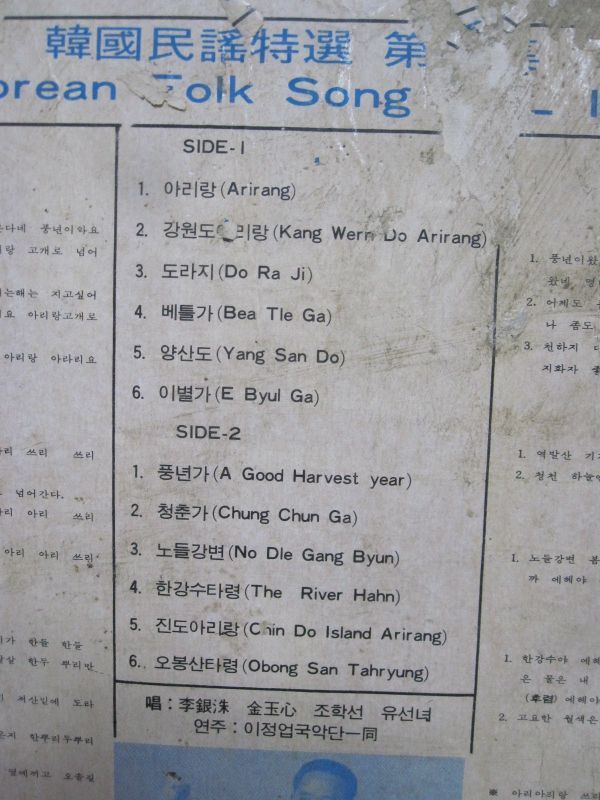 韓國民謠特選 第
orean Folk Song
SIDE-1
1. 아리랑 (Arirang)
2. 강원도아리랑 (Kang Wern Do Arirang)
3. 도라지 (Do Ra Ji)
4. 베틀가 (Bea Tle Ga)
5. 양산도 (Yang San Do)
6. 이별가 (E Byul Ga)
SIDE-2
1. 풍년가 (A Good Harvest year)
2. 청춘가 (Chung Chun Ga)
3. 노들강변 (No Dle Gang Byun)
4. 한강수타령 (The River Hahn)
5. 진도아리랑 (Chin Do Island Arirang)
6. 오봉산타령 (Obong San Tahryung)
唱 : 李銀洙 金玉心 조학선 유선녀
연주 : 이정업국악단一同
풍년이와요
고개로 넘어
지고싶어
아리랑고개로
아리랑 아라리요
쓰리 쓰리
넘어간다.
아리 아리 쓰리
아리 아리 쓰리
한들 한들
한두 뿌리만
저산밑에 도라
한뿌리두뿌리
1. 풍년이왔
왔네
2. 어제도
나 좀도
3. 천하지
지화자
1. 역발산
2. 청천 하늘에
1. 노들강변 봄
까 에헤야
1. 한강수야 에헤
은 물은 내
(후렴) 에헤야
2. 고요한 월색은
※ 아리아리랑 쓰리